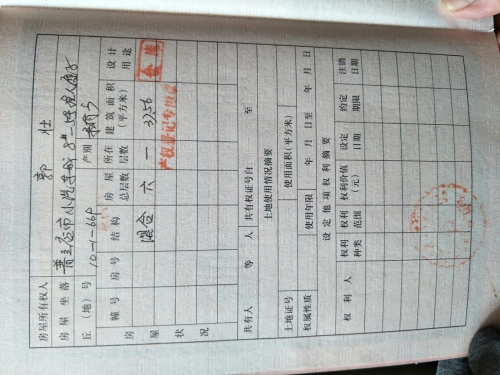 房屋所有权人 郭 壮
房屋坐落 普兰店市
丘（地）号 10-1-66 产别
房屋状况
幢号 房号 结构 房屋总层数 所在层数 建筑面积（平方米） 设计用途
混合 六 一 37.56 仓库
共有人 等 人 共有权证号自 至
土地使用情况摘要
土地证号 使用面积（平方米）
权属性质 使用年限 年 月 日至 年 月 日
设定他项权利摘要
权利人 权利种类 权利范围 权利价值（元） 设定日期 约定期限 注销日期